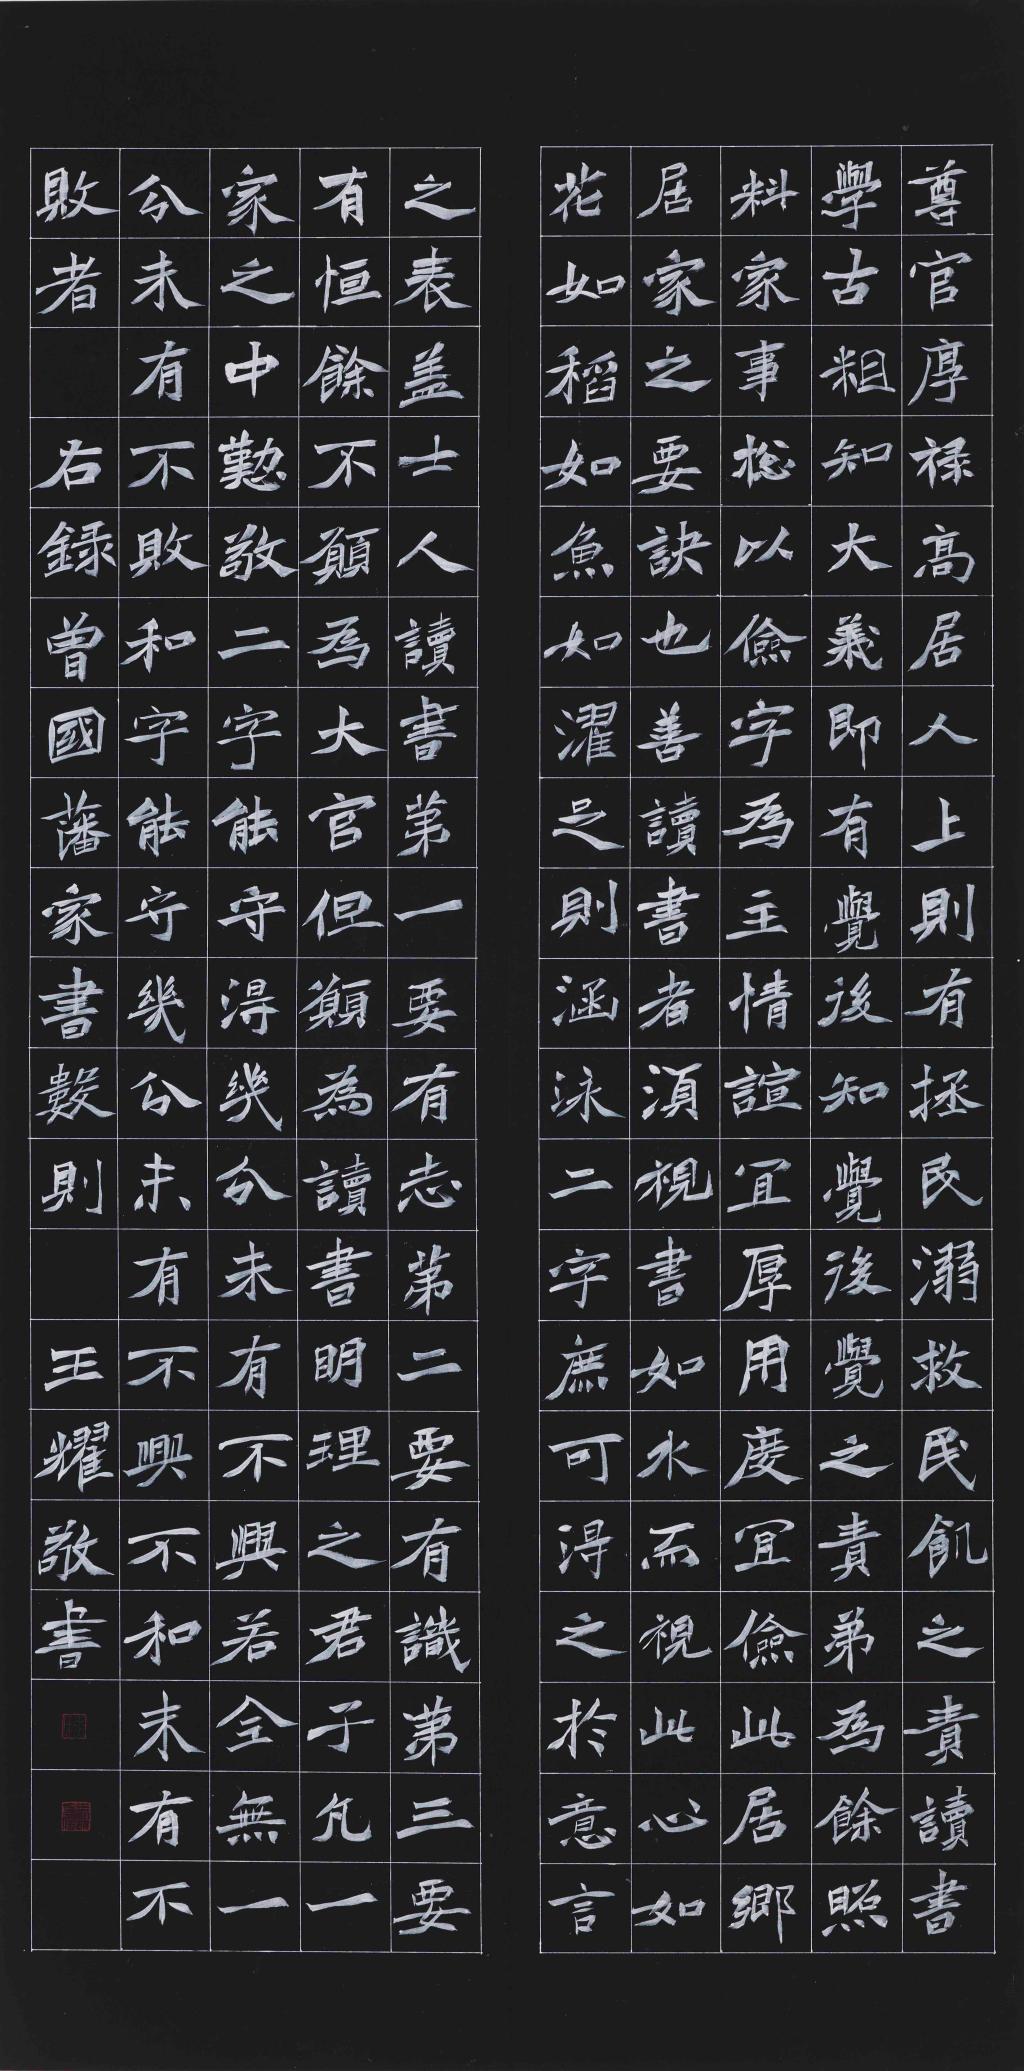 尊官厚禄高居人上則有拯民溺救民飢之責讀書
學古粗知大義即有覺後知覺後覺之責弟為餘照
料家事總以儉字為主情誼宜厚用度宜儉此居鄉
居家之要訣也善讀書者須視書如水而視此心如
花如稻如魚如濯足則涵泳二字庶可得之於意言
之表盖士人讀書第一要有志第二要有識第三要
有恒餘不願為大官但願為讀書明理之君子凡一
家之中勤敬二字能守得幾分未有不興若全無一
分未有不敗和字能守幾分未有不興不和未有不
敗者 右錄曾國藩家書數則 王耀敬書